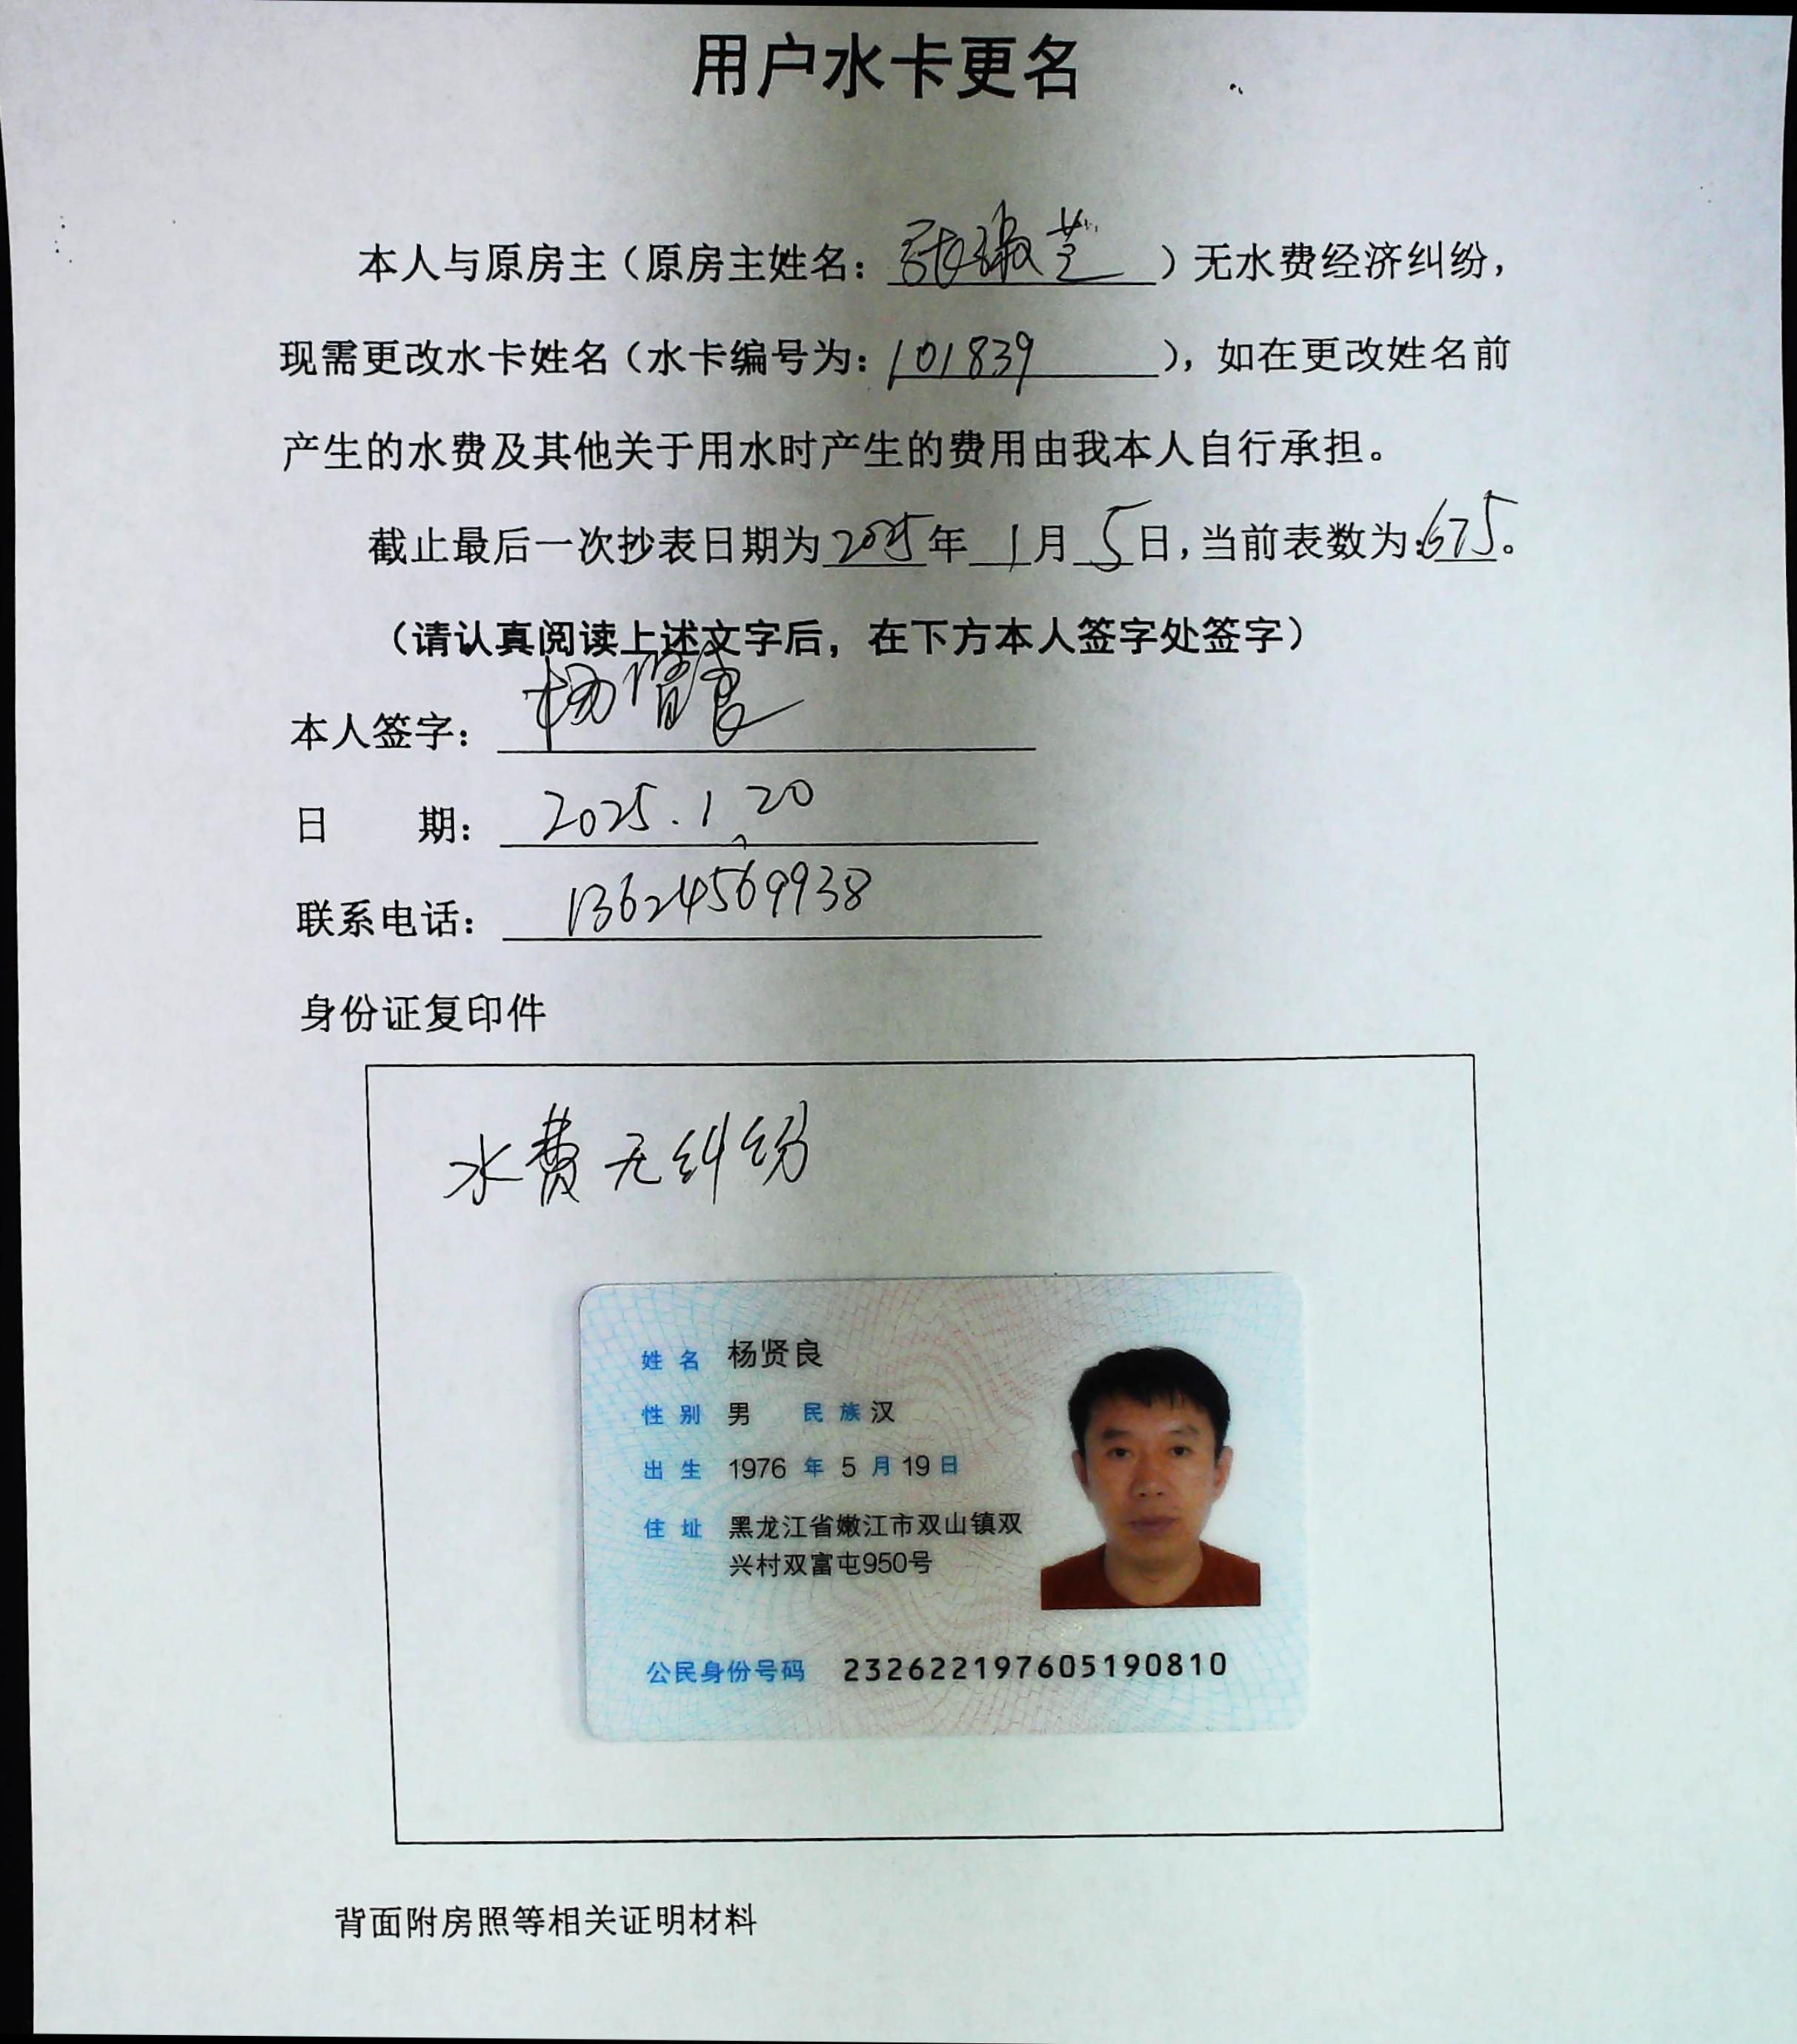 用户水卡更名
本人与原房主（原房主姓名：张淑芝）无水费经济纠纷，
现需更改水卡姓名（水卡编号为：101839），如在更改姓名前
产生的水费及其他关于用水时产生的费用由我本人自行承担。
截止最后一次抄表日期为2025年1月5日，当前表数为：675。
（请认真阅读上述文字后，在下方本人签字处签字）
本人签字：杨贤良
日期：2025.1.20
联系电话：13624569938
身份证复印件
水费无纠纷
姓名 杨贤良
性别 男 民族 汉
出生 1976 年 5 月 19 日
住址 黑龙江省嫩江市双山镇双
兴村双富屯950号
公民身份号码 232622197605190810
背面附房照等相关证明材料